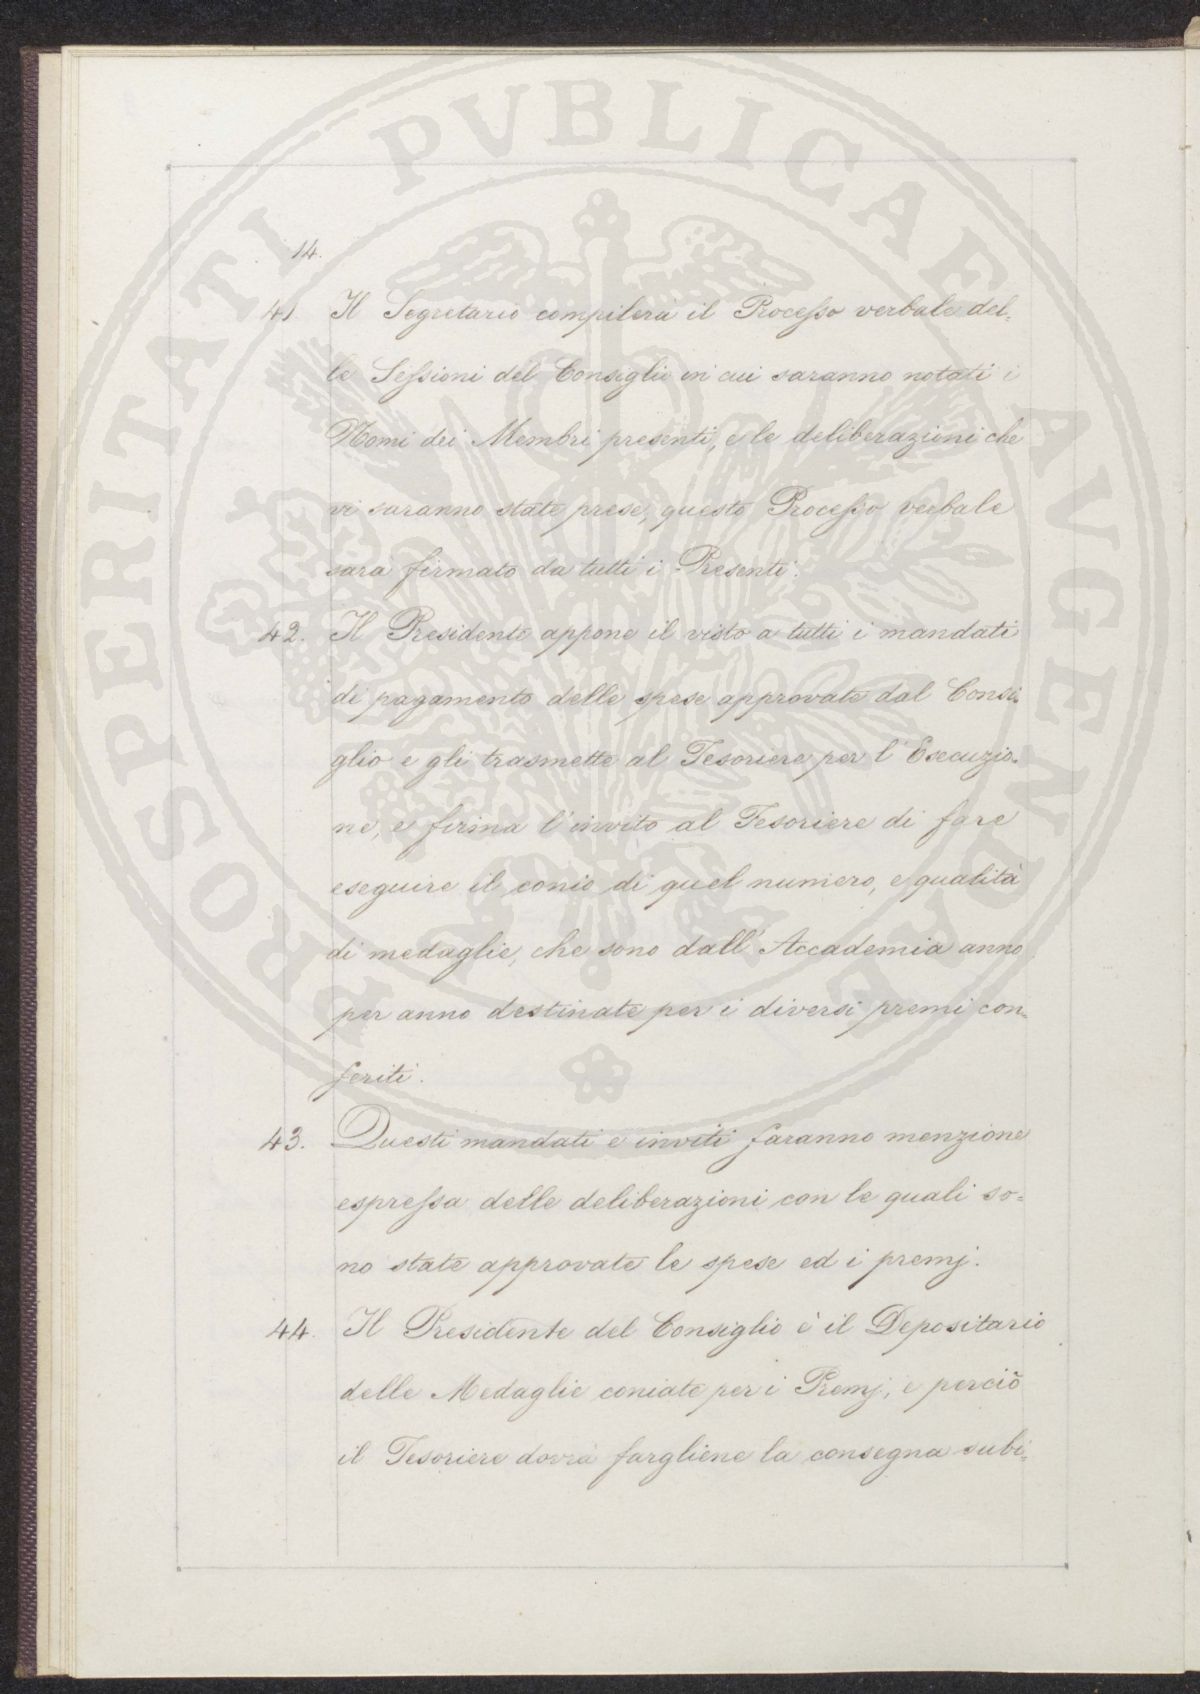 PROSPERITATI PVBLICAE AVGENDAE
14.
41. Il Segretario compilerà il Processo verbale del=
le Sessioni del Consiglio in cui saranno notati i
Nomi dei Membri presenti, e le deliberazioni che
vi saranno state prese, questo Processo verbale
sarà firmato da tutti i Presenti.
42. Il Presidente appone il visto a tutti i mandati
di pagamento delle spese approvate dal Consi=
glio e gli trasmette al Tesoriere per l'Esecuzio=
ne, e firma l'invito al Tesoriere di fare
eseguire il conio di quel numero, e qualità
di medaglie, che sono dall'Accademia anno
per anno destinate per i diversi premi con=
feriti.
43. Questi mandati e inviti faranno menzione
espressa delle deliberazioni con le quali so=
no state approvate le spese ed i premj.
44. Il Presidente del Consiglio è il Depositario
delle Medaglie coniate per i Premj, e perciò
il Tesoriere dovrà fargliene la consegna subi=